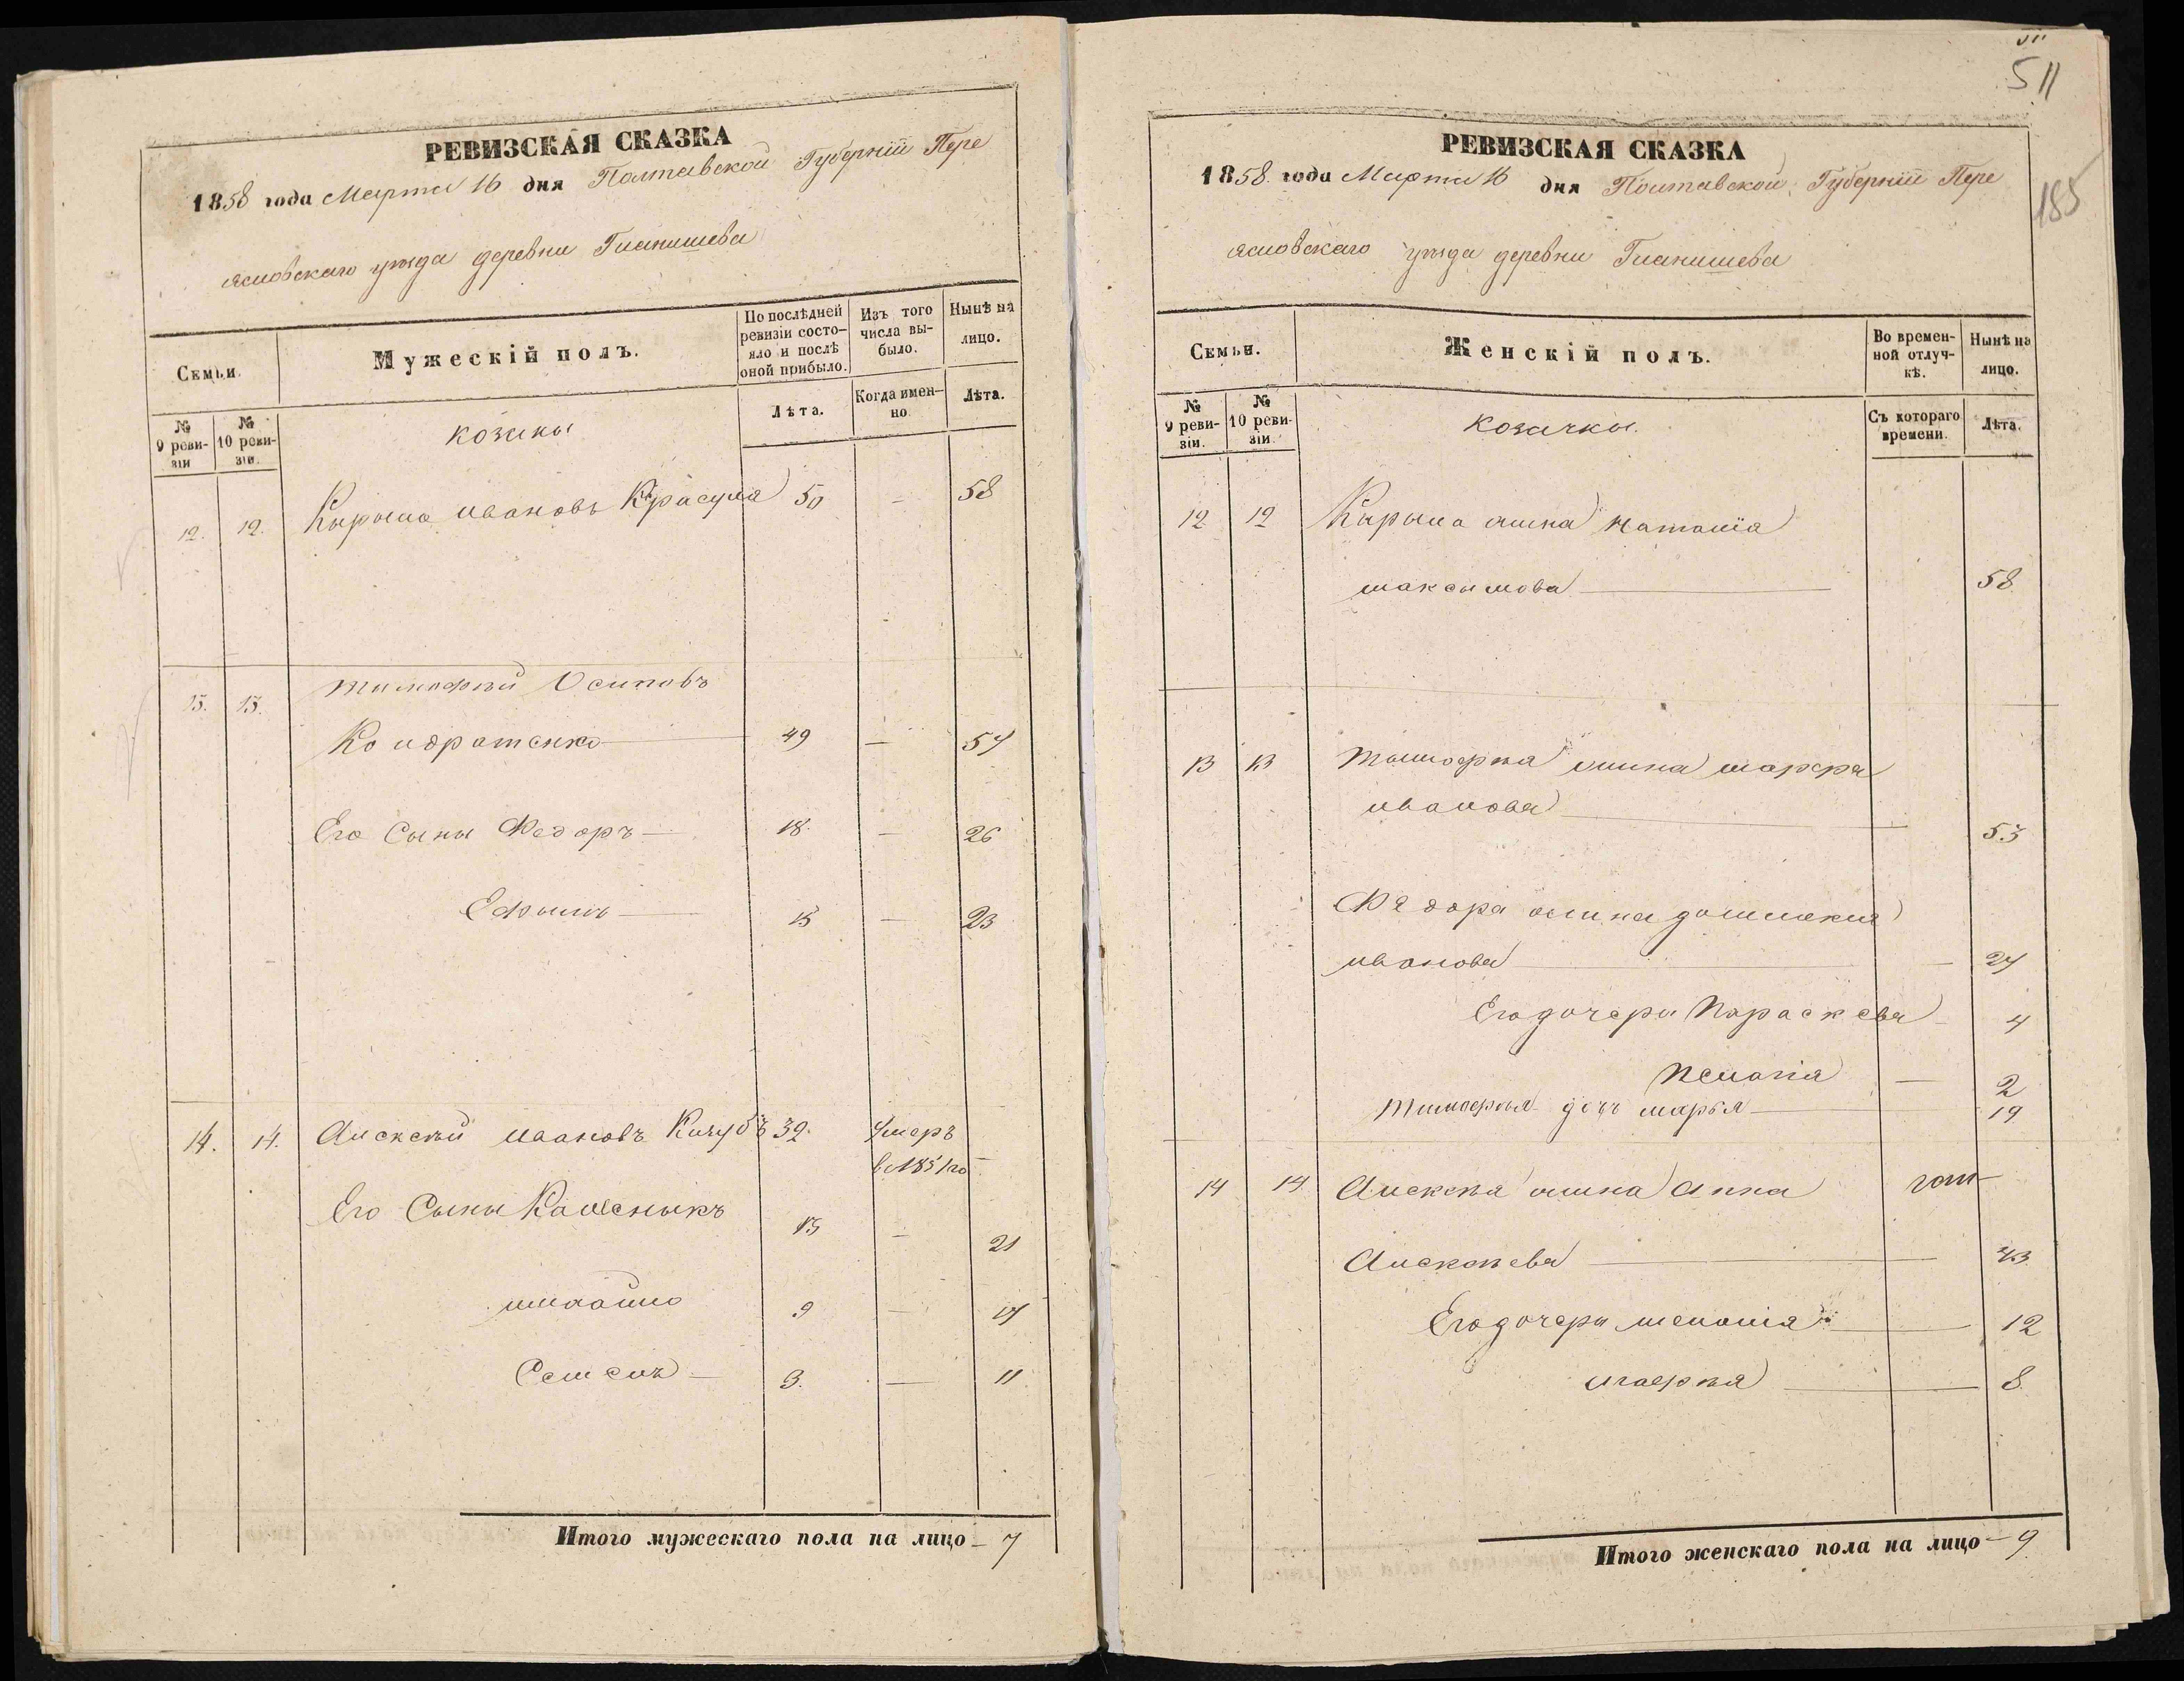 РЕВИЗСКАЯ СКАЗКА
1858 года Марта 16 дня Полтавской Губерніи Пере
яславскаго уѣзда деревни Гланишева
Семьи.
Мужескій полъ.
По послѣдней ревизіи состо-
яло и послѣ оной прибыло.
Изъ того числа вы-
было.
Нынѣ на лицо.
№ 9 реви-
зіи
№ 10 реви-
зіи.
козаки
Лѣта.
Когда имен-
но
Лѣта.
12. 12. Кирыла Ивановъ Красуля 50 — 58
13. 13. Тимофѣй Осиповъ
Кондратенко — 49 — 57
Его Сыны Федоръ — 18. — 26
Ефымъ — 15 — 23
14. 14. Алексѣй Ивановъ 32. Умеръ
в 1851 го
Его Сыны 13 — 21
9 — 17
Семенъ — 3. — 11
Итого мужескаго пола на лицо — 7
511
185
РЕВИЗСКАЯ СКАЗКА
1858. года Марта 16 дня Полтавской Губерніи Пере
яславскаго уѣзда деревни Гланишева
Семьи.
Женскій полъ.
Во времен-
ной отлуч-
кѣ.
Нынѣ на лицо.
№ 9 реви-
зіи.
№ 10 реви-
зіи.
козачкы.
Съ котораго времени.
Лѣта.
12 12 Кирыла жина наталія
максымова — 58
13 13 Тимофѣя жина марфа
иванова — 53
Федора жина домникия
иванова — 27
Его дочери Параскева — 4
— 2
тимофѣя дочь марья — 19
14 14 Алексѣя жина Анна
Алексѣева — 43
Его дочери меланія — 12
— 8.
Итого женскаго пола на лицо — 9.